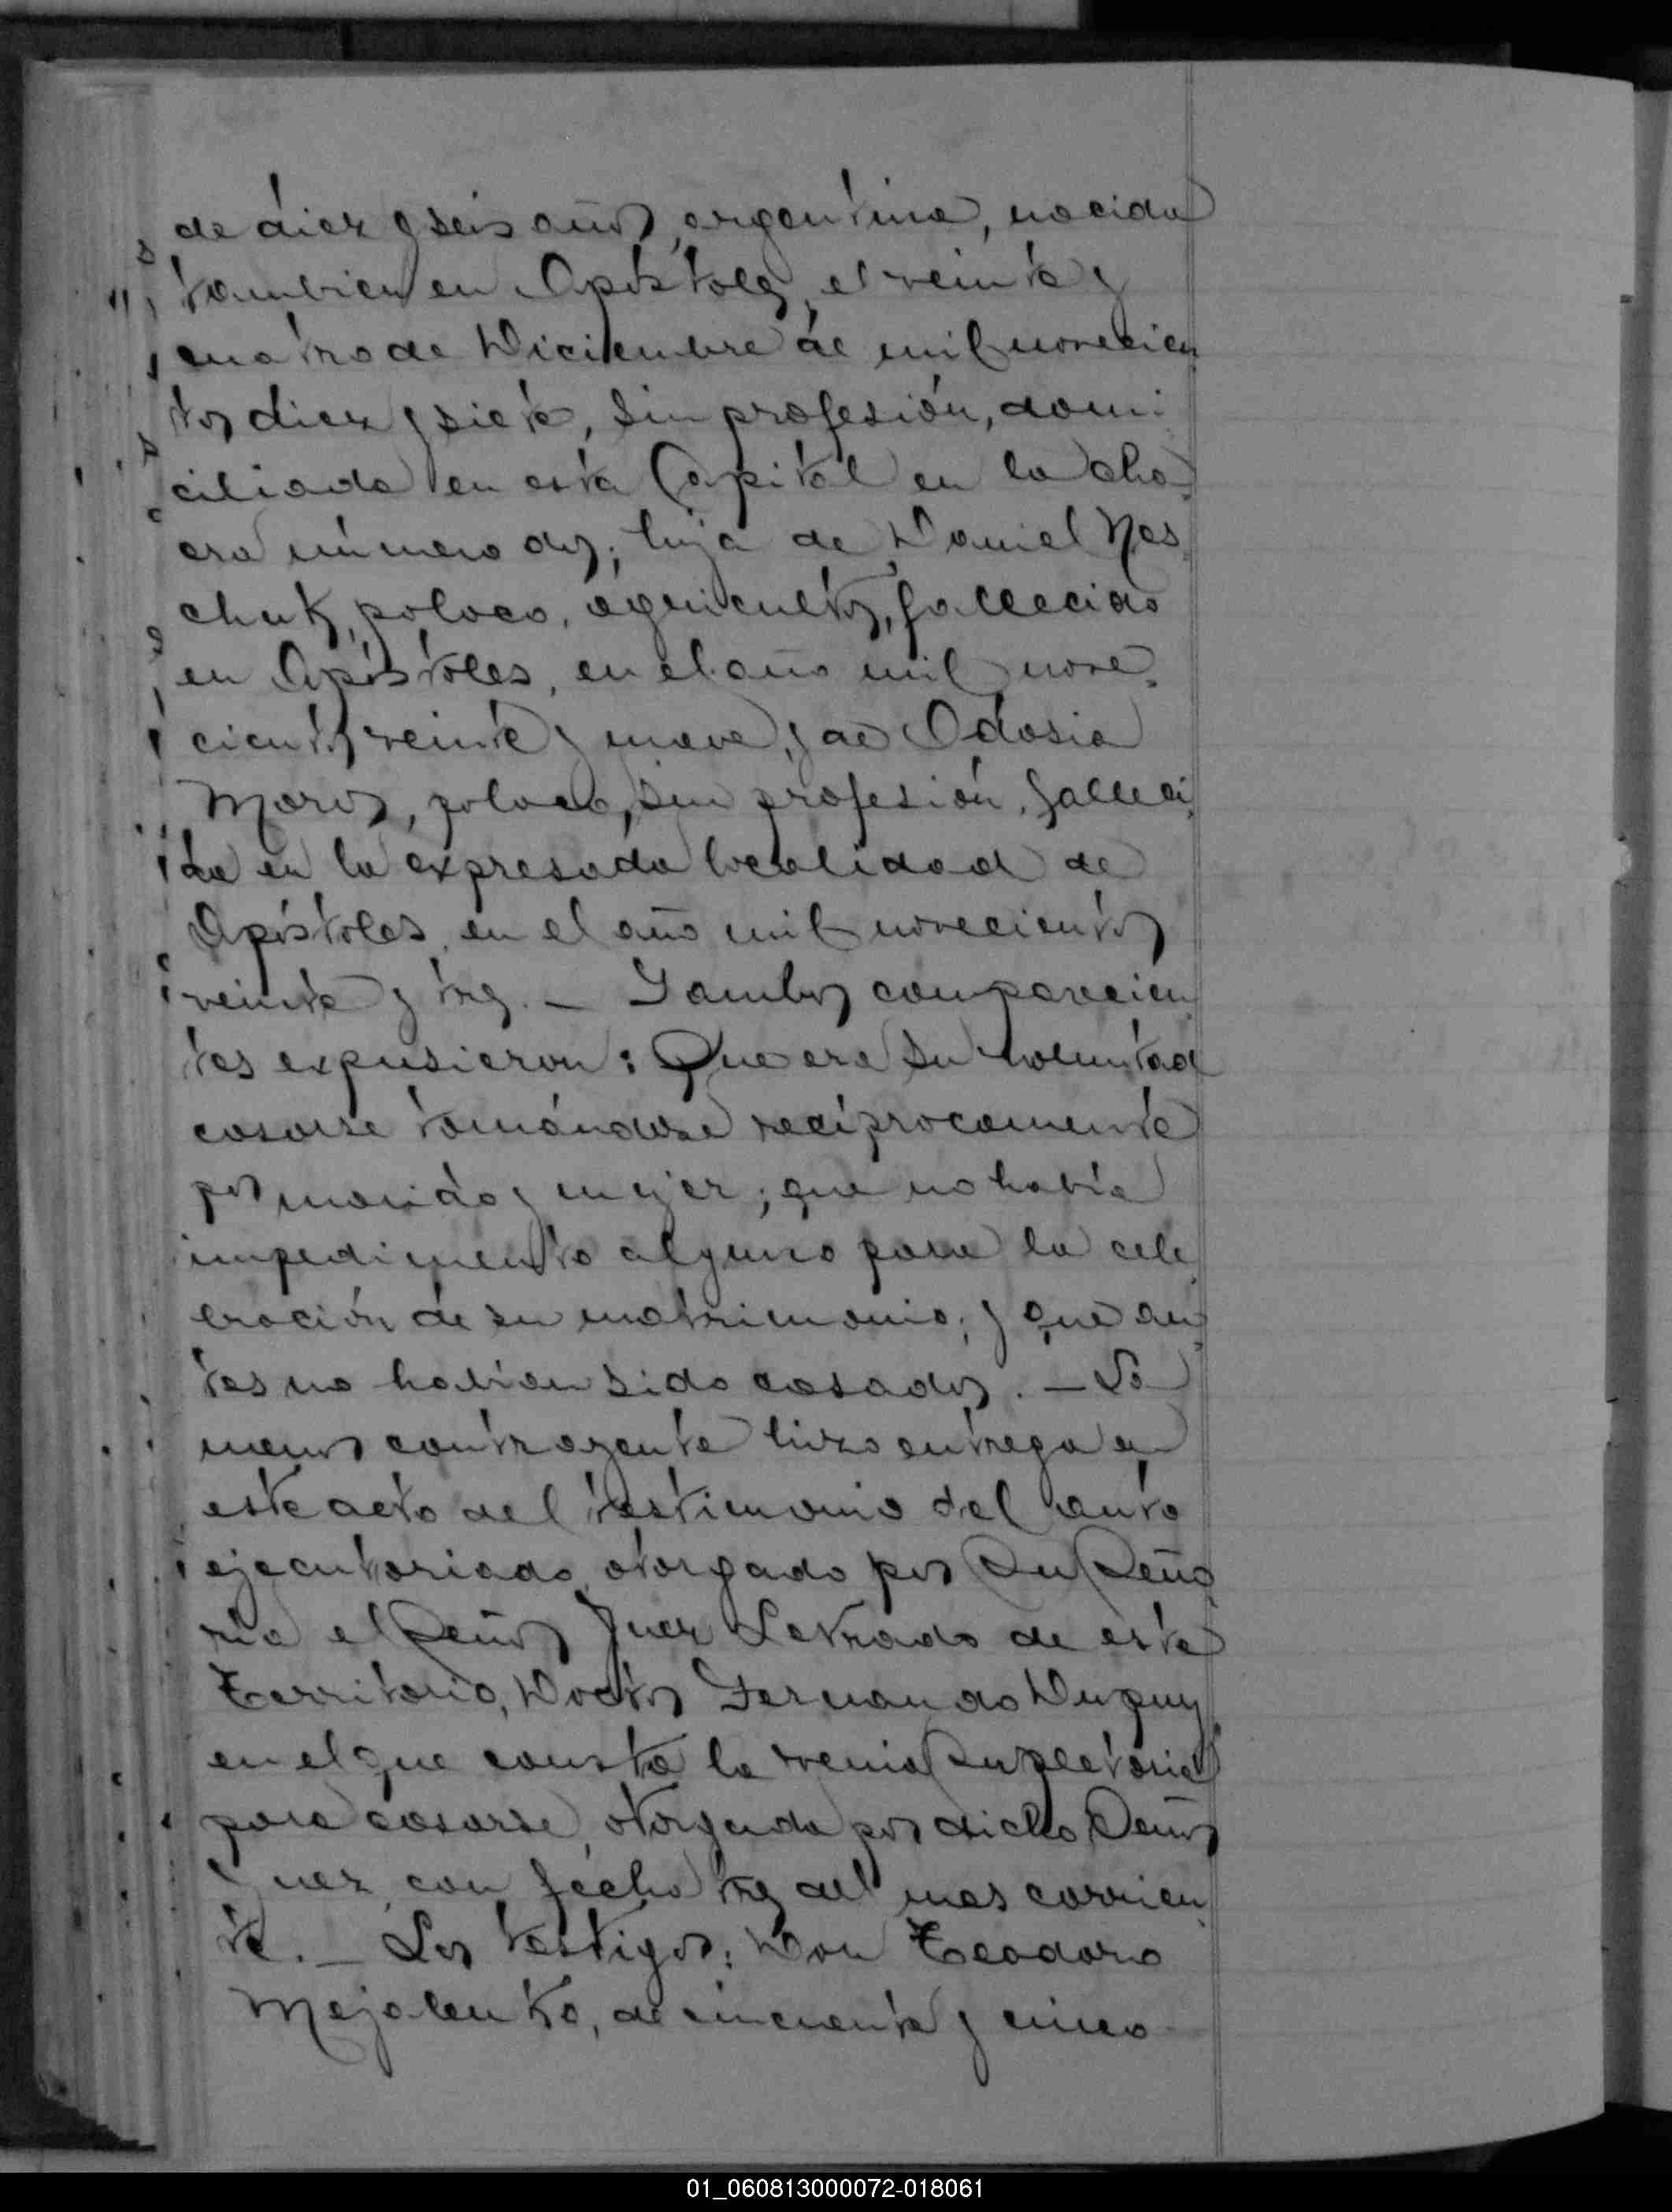 de diez y seis años, argentina, nacida
tambien en Apóstoles, el veinte y
cuatro de Diciembre de mil novecien
tos diez y siete, sin profesión, domi-
ciliada en esta Capital en la cha-
cra número dos; hija de Daniel Nes
chuk, polaco, agricultor, fallecido
en Apóstoles, en el año mil nove-
cientos veinte y nueve, y de Odosia
Moroz, polaca, sin profesión, falleci-
da en la expresada localidad de
Apóstoles, en el año mil novecientos
veinte y tres. — Y ambos comparecien
tes expusieron: Que era su voluntad
casarse tomándose recíprocamente
por marido y mujer; que no había
impedimento alguno para la cele
bración de su matrimonio; y que an
tes no habían sido casados. — La
menor contrayente hizo entrega en
este acto del testimonio del auto
ejecutoriado, otorgado por Su Seño
ria el Señor Juez Letrado de este
Territorio, Doctor Fernando Dupuy
en el que consta la venia supletoria
para casarse, otorgada por dicho Señor
Juez, con fecha tres del mes corrien
te. — Los testigos: Don Teodoro
Mejalenko, de cincuenta y cinco
01_060813000072-018061